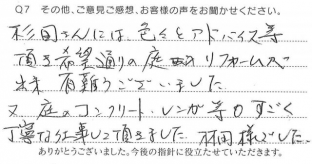 Q7 その他、ご意見ご感想、お客様の声をお聞かせください。
杉田さんには、色々とアドバイス等
頂き希望通りの庭 リフォームが
出来 有難うございました
又 庭のコンクリート・レンガ等のすごく
丁寧な仕事して頂きました
ありがとうございました。今後の指針に役立たせていただきます。